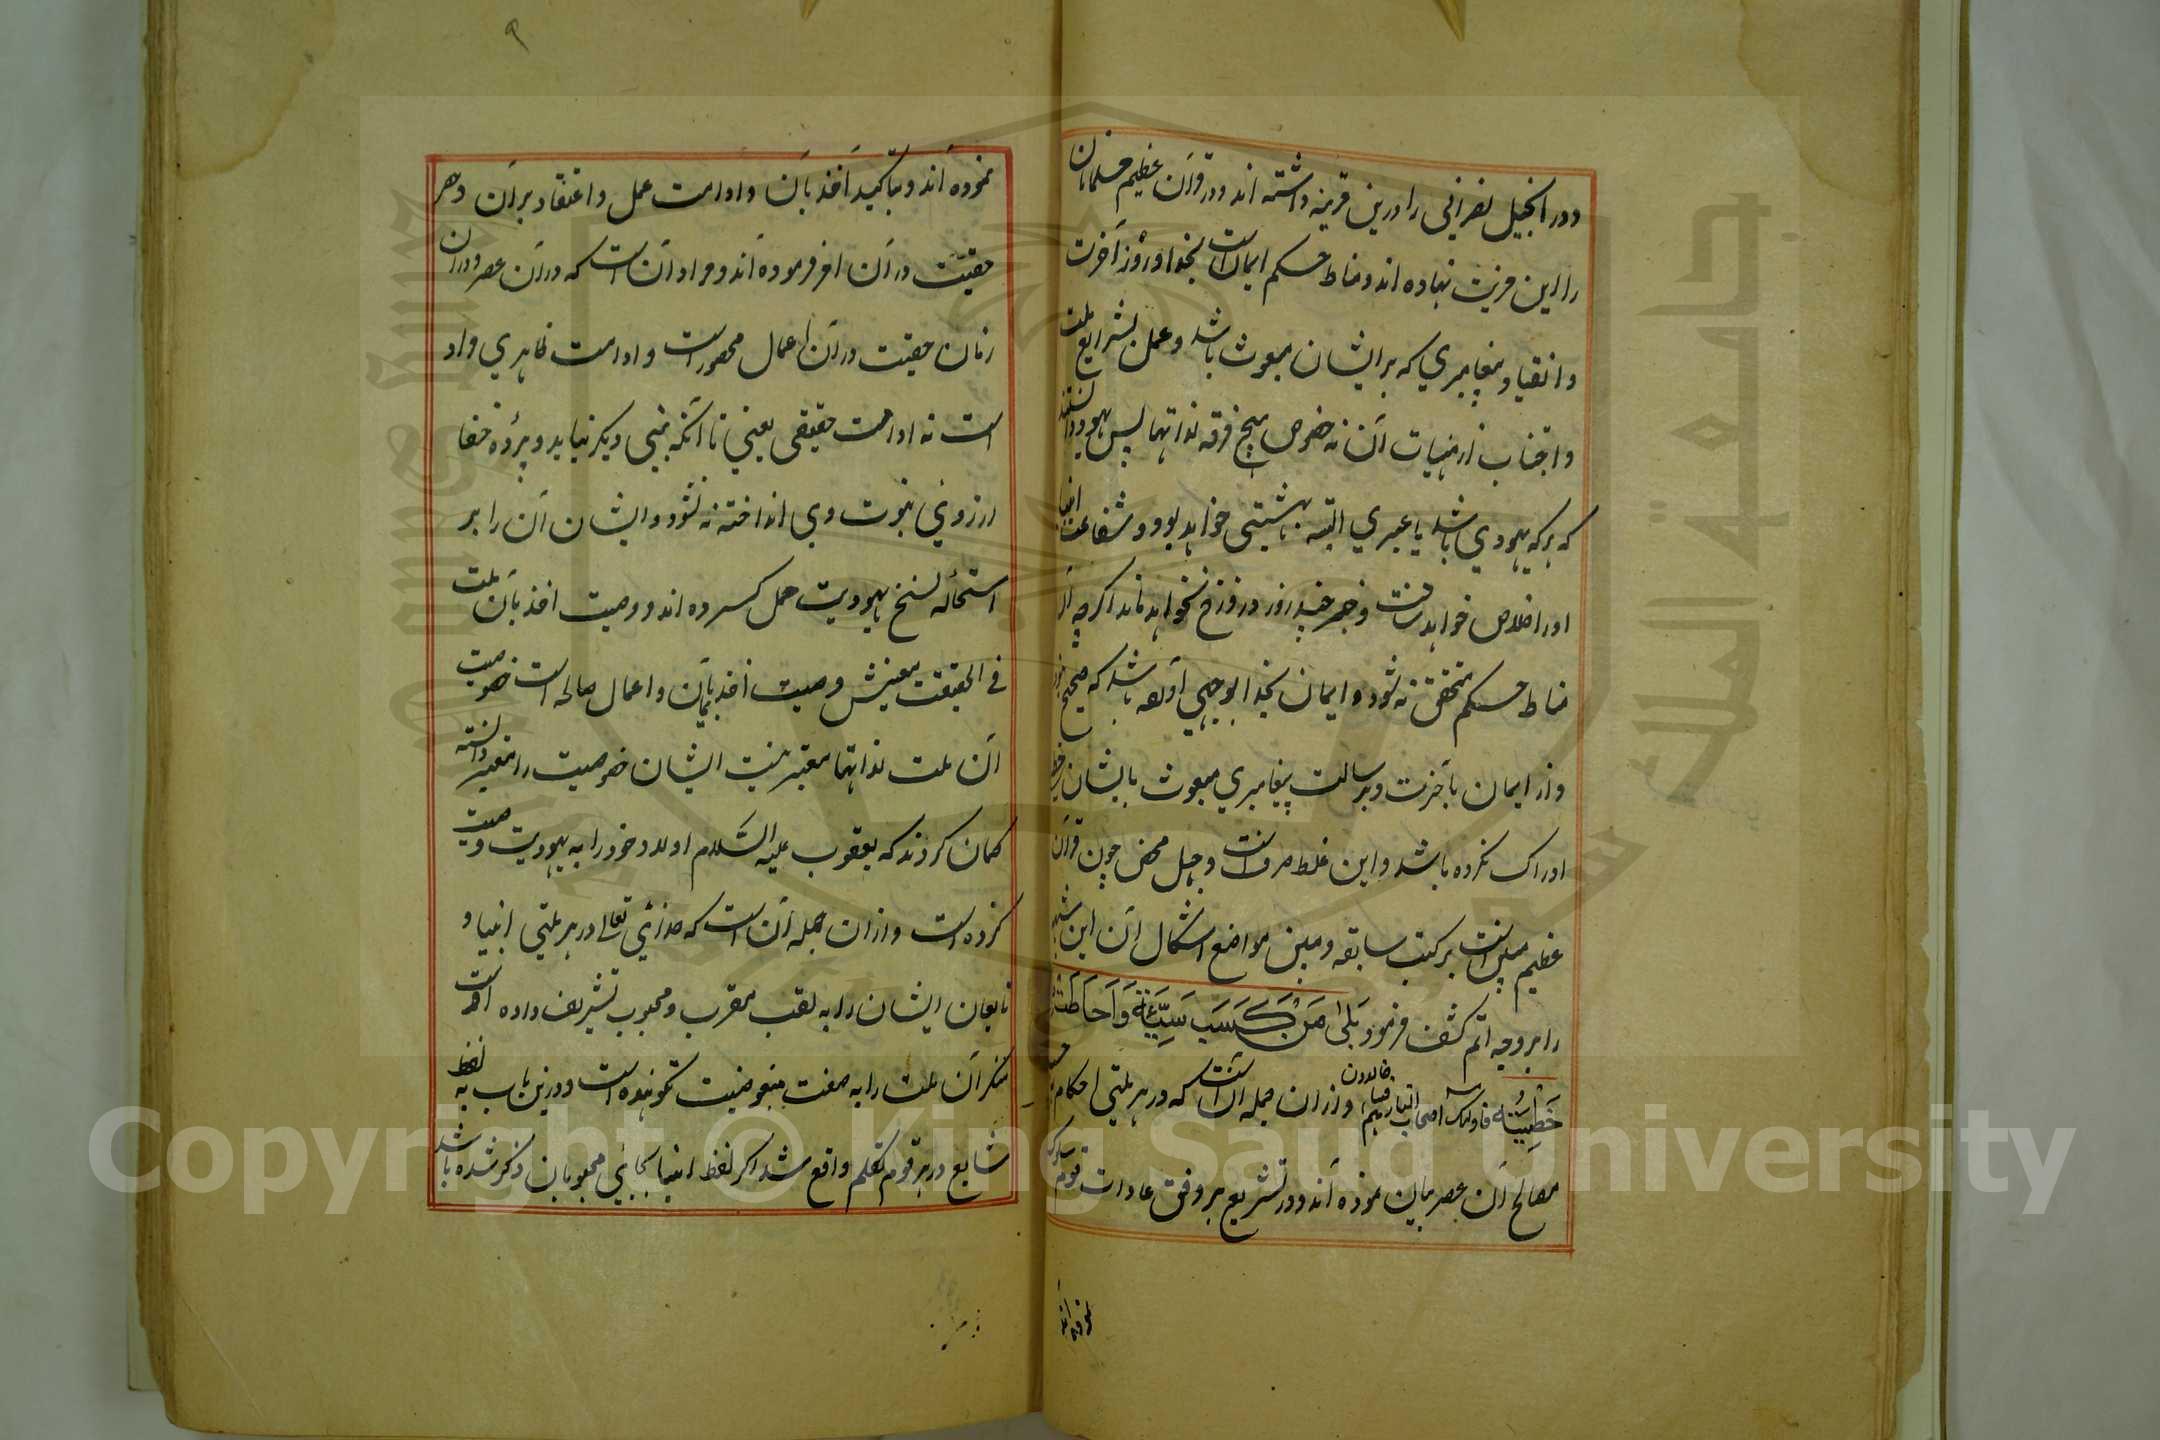 ودر انجیل نصرانی را درین قرینه داشته اند ودر قرآن عظیم مسلمانان
را این مزیت نهاده اند ومناط حکم ایمان است بخدا وروز آخرت
وانقیاد پیغامبری که بر ایشان مبعوث باشد وعمل بشرایع ملت
واجتناب از منهیات آن نه خصوص هیچ فرقه لذاتها پس یهود دانستند
که هر که یهودی باشد یا عبری البته بهشتی خواهد بود وشفاعت انبیا
اورا خلاص خواهد ساخت وجز چند روز در دوزخ نخواهد ماند اگرچه آن
مناط حکم متحقق نه شود وایمان بخدا بوجهی آورده باشد که صحیح نبود
واز ایمان بآخرت وبرسالت پیغامبری مبعوث بایشان حظی
ادراک نکرده باشد واین غلط صرف است وجهل محض چون قرآن
عظیم مهیمن است بر کتب سابقه ومبین مواضع اشکال آن این شبهه
را بر وجه اتم کشف فرمود بَلَىٰ مَنْ كَسَبَ سَيِّئَةً وَأَحَاطَتْ بِهِ
خَطِيئَتُهُ فاولئک اصحاب النار هم فیها خالدون وازان جمله آن است که در هر ملتی احکام
مصالح آن عصر بیان نموده اند ودر تشریع بر وفق عادات قوم سلوک
نموده اند
نموده اند وبتاکید اخذ بآن وادامت عمل واعتقاد بر آن وحصر
حقیت در آن امر فرموده اند ومراد آن است که در آن عصر ودران
زمان حقیت در آن اعمال محصور است وادامت ظاهری مراد
است نه ادامت حقیقی یعنی تا آنکه نبی دیگر نیاید وپرده خفا
از روئی نبوت وی انداخته نه شود وایشان آن را بر
استحاله نسخ یهودیت حمل کرده اند ووصیت اخذ بآن ملت
فی الحقیقت معنیش وصیت اخذ بایمان واعمال صالحه است خصوصیت
آن ملت لذاتها معتبر نیست ایشان خصوصیت را معتبر دانسته
گمان کردند که یعقوب علیه السلام اولاد خود را به یهودیت وصیت
کرده است وازان جمله آن است که خدائی تعالی در هر ملتی انبیا و
تابعان ایشان را به لقب مقرب ومحبوب تشریف داده است
منکر آن ملت را به صفت مبغوضیت نکوهیده است ودرین باب به لفظ
شایع در هر قوم تکلم واقع شد اگر لفظ ابنا بجائی محبوبان ذکر شده باشد